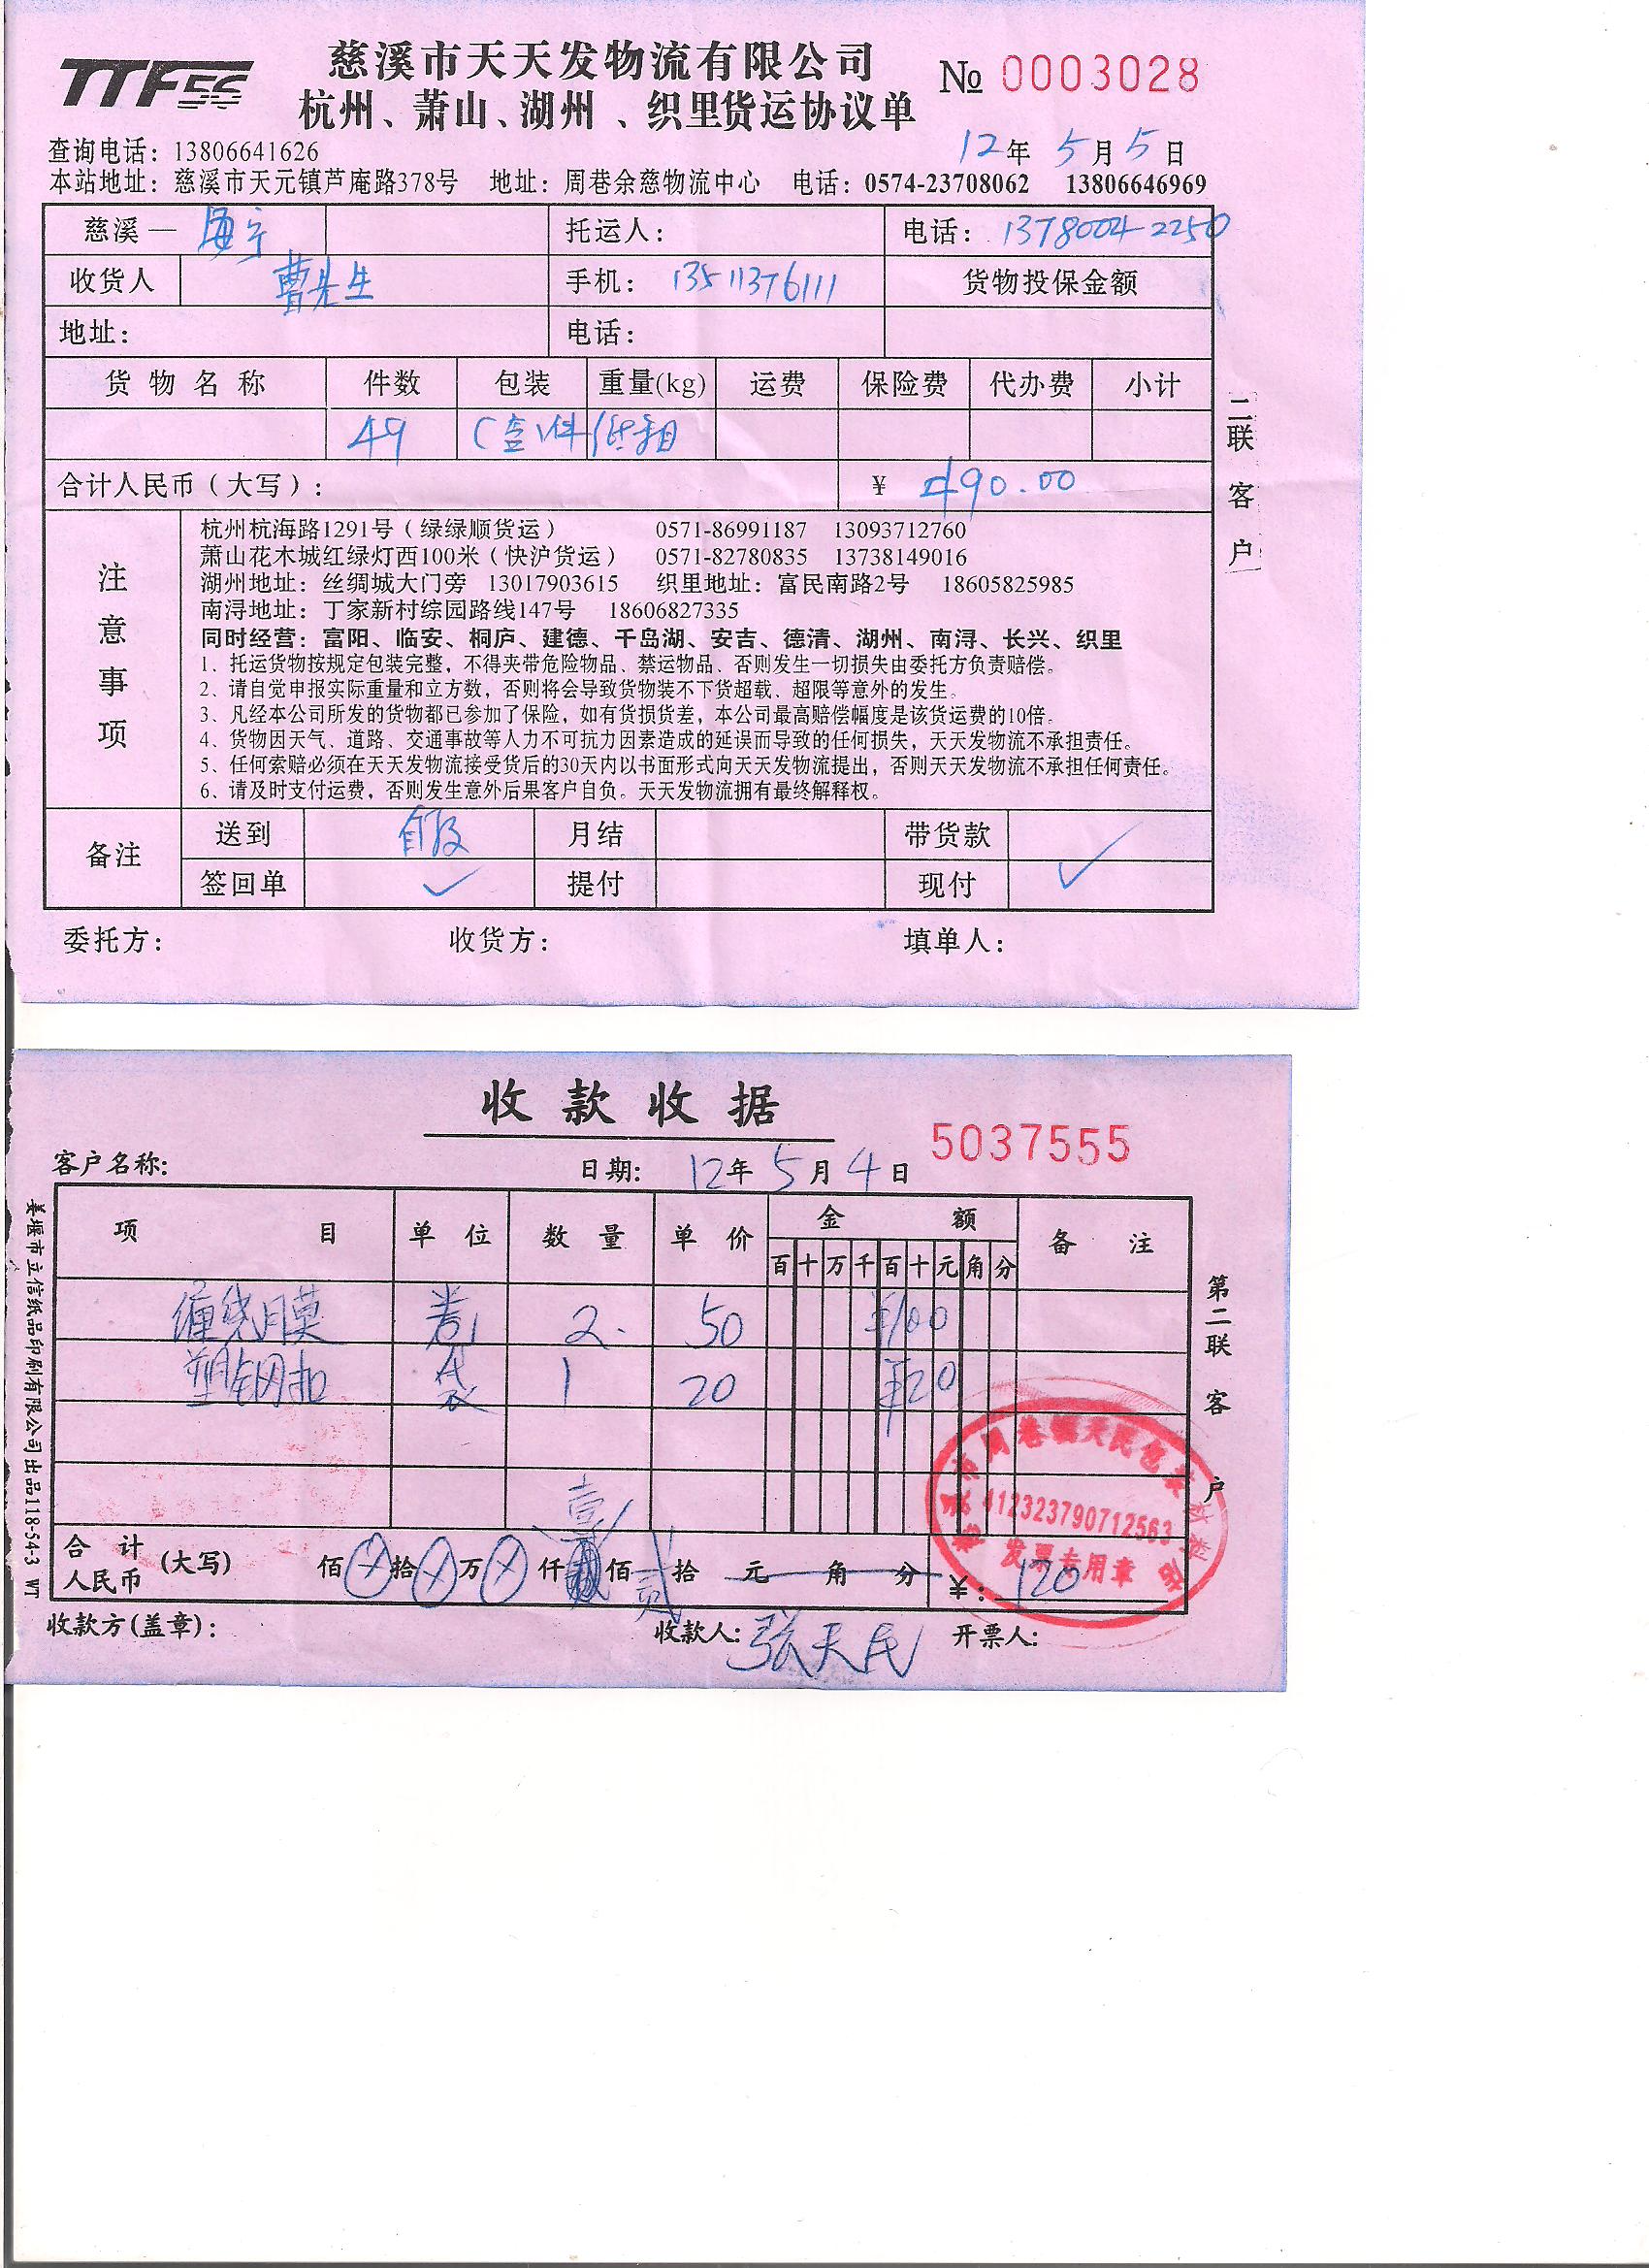 TTF56
慈溪市天天发物流有限公司
№ 0003028
杭州、萧山、湖州、织里货运协议单
查询电话：13806641626
12年5月5日
本站地址：慈溪市天元镇芦庵路378号 地址：周巷余慈物流中心 电话：0574-23708062 13806646969
慈溪—海宁 托运人： 电话：13780042250
收货人 曹先生 手机：13511376111 货物投保金额
地址： 电话：
货物名称 件数 包装 重量(kg) 运费 保险费 代办费 小计
49
合计人民币（大写）： ¥ 490.00
注意事项
杭州杭海路1291号（绿绿顺货运） 0571-86991187 13093712760
萧山花木城红绿灯西100米（快沪货运） 0571-82780835 13738149016
湖州地址：丝绸城大门旁 13017903615 织里地址：富民南路2号 18605825985
南浔地址：丁家新村综园路线147号 18606827335
同时经营：富阳、临安、桐庐、建德、千岛湖、安吉、德清、湖州、南浔、长兴、织里
1、托运货物按规定包装完整，不得夹带危险物品、禁运物品、否则发生一切损失由委托方负责赔偿。
2、请自觉申报实际重量和立方数，否则将会导致货物装不下货超载、超限等意外的发生。
3、凡经本公司所发的货物都已参加了保险，如有货损货差，本公司最高赔偿幅度是该货运费的10倍。
4、货物因天气、道路、交通事故等人力不可抗力因素造成的延误而导致的任何损失，天天发物流不承担责任。
5、任何索赔必须在天天发物流接受货后的30天内以书面形式向天天发物流提出，否则天天发物流不承担任何责任。
6、请及时支付运费，否则发生意外后果客户自负。天天发物流拥有最终解释权。
备注 送到 月结 带货款
签回单 ✓ 提付 现付 ✓
委托方： 收货方： 填单人：
二联客户
收款收据
5037555
客户名称： 日期：12年5月4日
项目 单位 数量 单价 金额 备注
百十万千百十元角分
缠绕膜 卷 2 50 ¥100
塑钢扣 袋 1 20 ¥20
合计人民币（大写） 佰⊗拾⊗万⊗仟壹佰贰拾元角分 ¥：120
收款方(盖章)： 收款人：张天民 开票人：
第二联客户
姜堰市立信纸品印刷有限公司出品118-54-3 WT
慈溪市周巷镇天民包装材料店
412323790712563
发票专用章